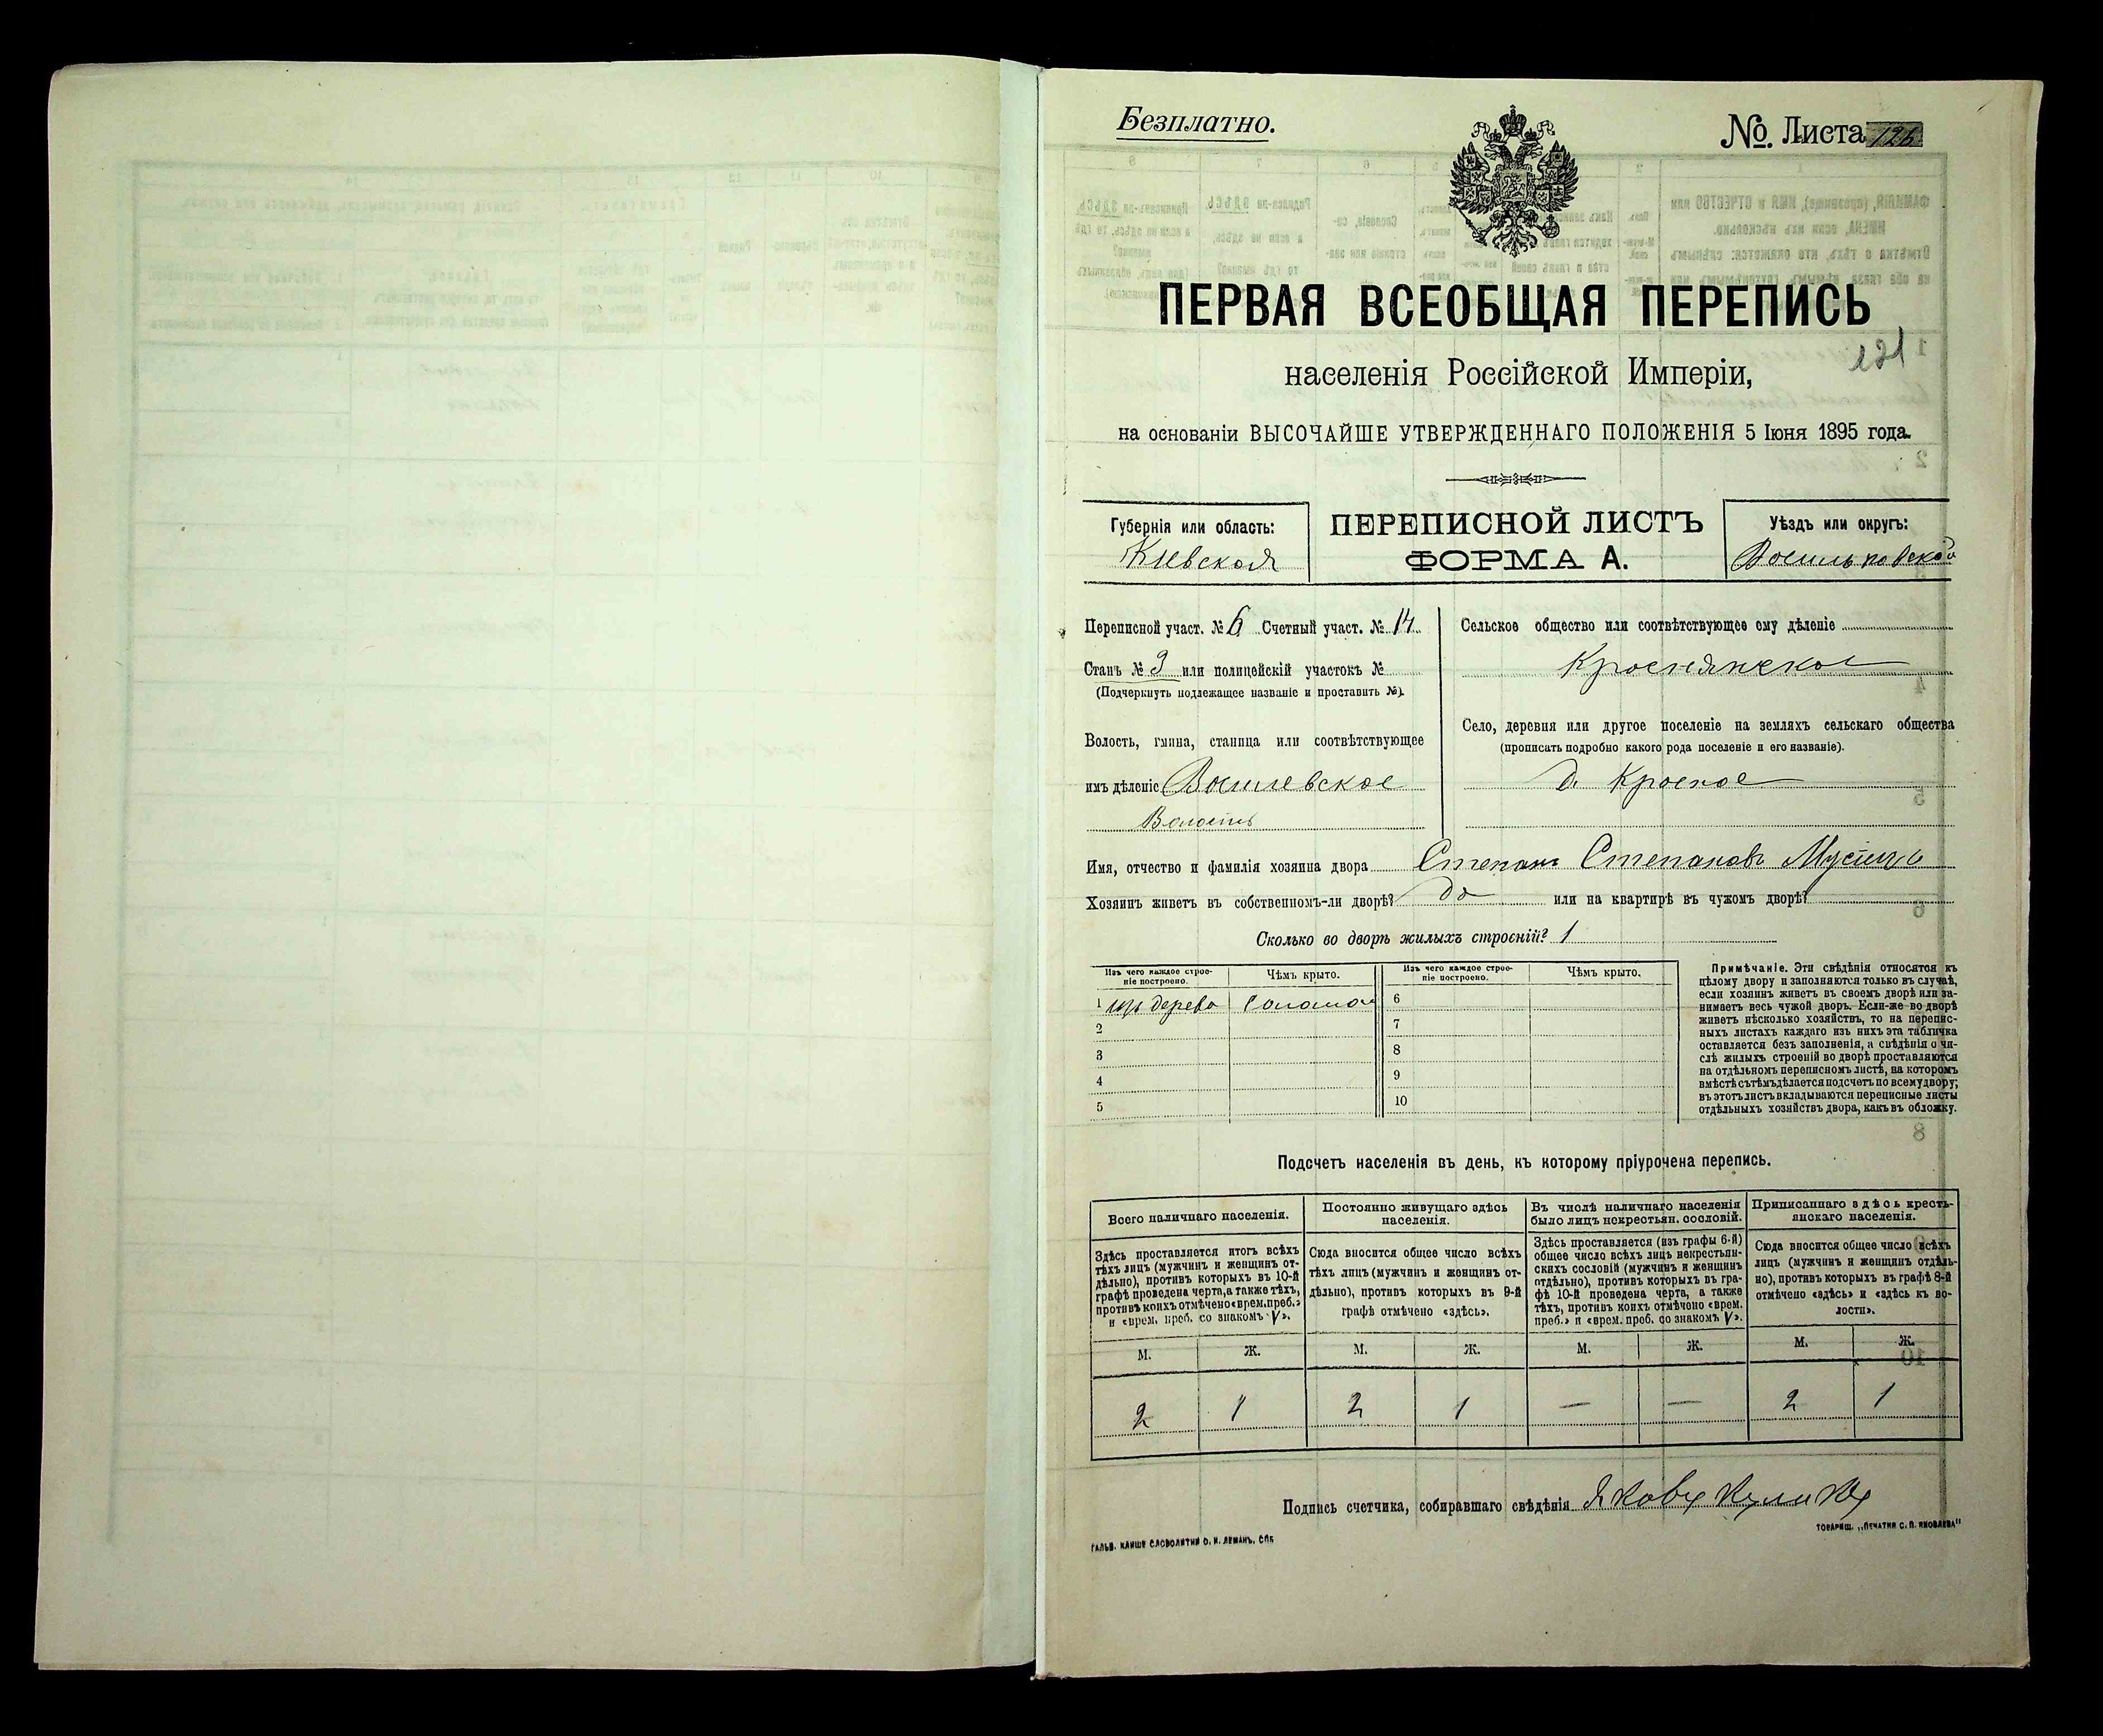 Безплатно.
№ Листа 126
ПЕРВАЯ ВСЕОБЩАЯ ПЕРЕПИСЬ
121
населенія Россійской Имперіи,
на основаніи ВЫСОЧАЙШЕ УТВЕРЖДЕННАГО ПОЛОЖЕНІЯ 5 Іюня 1895 года.
Губернія или область:
Кіевская
ПЕРЕПИСНОЙ ЛИСТЪ
ФОРМА А.
Уѣздъ или округъ:
Васильковскій
Переписной участ. № 6 Счетный участ. № 14
Станъ № 3 или полицейскій участокъ №
(Подчеркнуть подлежащее названіе и проставить №).
Волость, гмина, станица или соотвѣтствующее
имъ дѣленіе
Волость
Сельское общество или соотвѣтствующее ему дѣленіе
Краснянское
Село, деревня или другое поселеніе на земляхъ сельскаго общества
(прописать подробно какого рода поселеніе и его названіе).
д. Красное
Имя, отчество и фамилія хозяина двора Степанъ Степановъ
Хозяинъ живетъ въ собственномъ-ли дворѣ? да или на квартирѣ въ чужомъ дворѣ?
Сколько во дворѣ жилыхъ строеній? 1
Изъ чего каждое строе-
ніе построено.
Чѣмъ крыто.
Изъ чего каждое строе-
ніе построено.
Чѣмъ крыто.
1 изъ дерева соломой 6
2 7
3 8
4 9
5 10
Примѣчаніе. Эти свѣдѣнія относятся къ
цѣлому двору и заполняются только въ случаѣ,
если хозяинъ живетъ въ своемъ дворѣ или за-
нимаетъ весь чужой дворъ. Если-же во дворѣ
живетъ нѣсколько хозяйствъ, то на перепис-
ныхъ листахъ каждаго изъ нихъ эта табличка
оставляется безъ заполненія, а свѣдѣнія о чи-
слѣ жилыхъ строеній во дворѣ проставляются
на отдѣльномъ переписномъ листѣ, на которомъ
вмѣстѣ съ тѣмъ дѣлается подсчетъ по всему двору;
въ этотъ листъ вкладываются переписные листы
отдѣльныхъ хозяйствъ двора, какъ въ обложку.
Подсчетъ населенія въ день, къ которому пріурочена перепись.
Всего наличнаго населенія.
Здѣсь проставляется итогъ всѣхъ
тѣхъ лицъ (мужчинъ и женщинъ от-
дѣльно), противъ которыхъ въ 10-й
графѣ проведена черта, а также тѣхъ,
противъ коихъ отмѣчено «врем. преб.»
и «врем. преб. со знакомъ V».
Постоянно живущаго здѣсь
населенія.
Сюда вносится общее число всѣхъ
тѣхъ лицъ (мужчинъ и женщинъ от-
дѣльно), противъ которыхъ въ 9-й
графѣ отмѣчено «здѣсь».
Въ числѣ наличнаго населенія
было лицъ некрестьян. сословій.
Здѣсь проставляется (изъ графы 6-й)
общее число всѣхъ лицъ некрестьян-
скихъ сословій (мужчинъ и женщинъ
отдѣльно), противъ которыхъ въ гра-
фѣ 10-й проведена черта, а также
тѣхъ, противъ коихъ отмѣчено «врем.
преб.» и «врем. преб. со знакомъ V».
Приписаннаго здѣсь кресть-
янскаго населенія.
Сюда вносится общее число всѣхъ
лицъ (мужчинъ и женщинъ отдѣль-
но), противъ которыхъ въ графѣ 8-й
отмѣчено «здѣсь» и «здѣсь къ во-
лости».
М. Ж. М. Ж. М. Ж. М. Ж.
2 1 2 1 — — 2 1
Подпись счетчика, собиравшаго свѣдѣнія Яковъ Куликъ
ГАЛЬВ. КЛИШЕ СЛОВОЛИТНИ О. И. ЛЕМАНЪ, СПБ
ТОВАРИЩ. „ПЕЧАТНЯ С. П. ЯКОВЛЕВА"